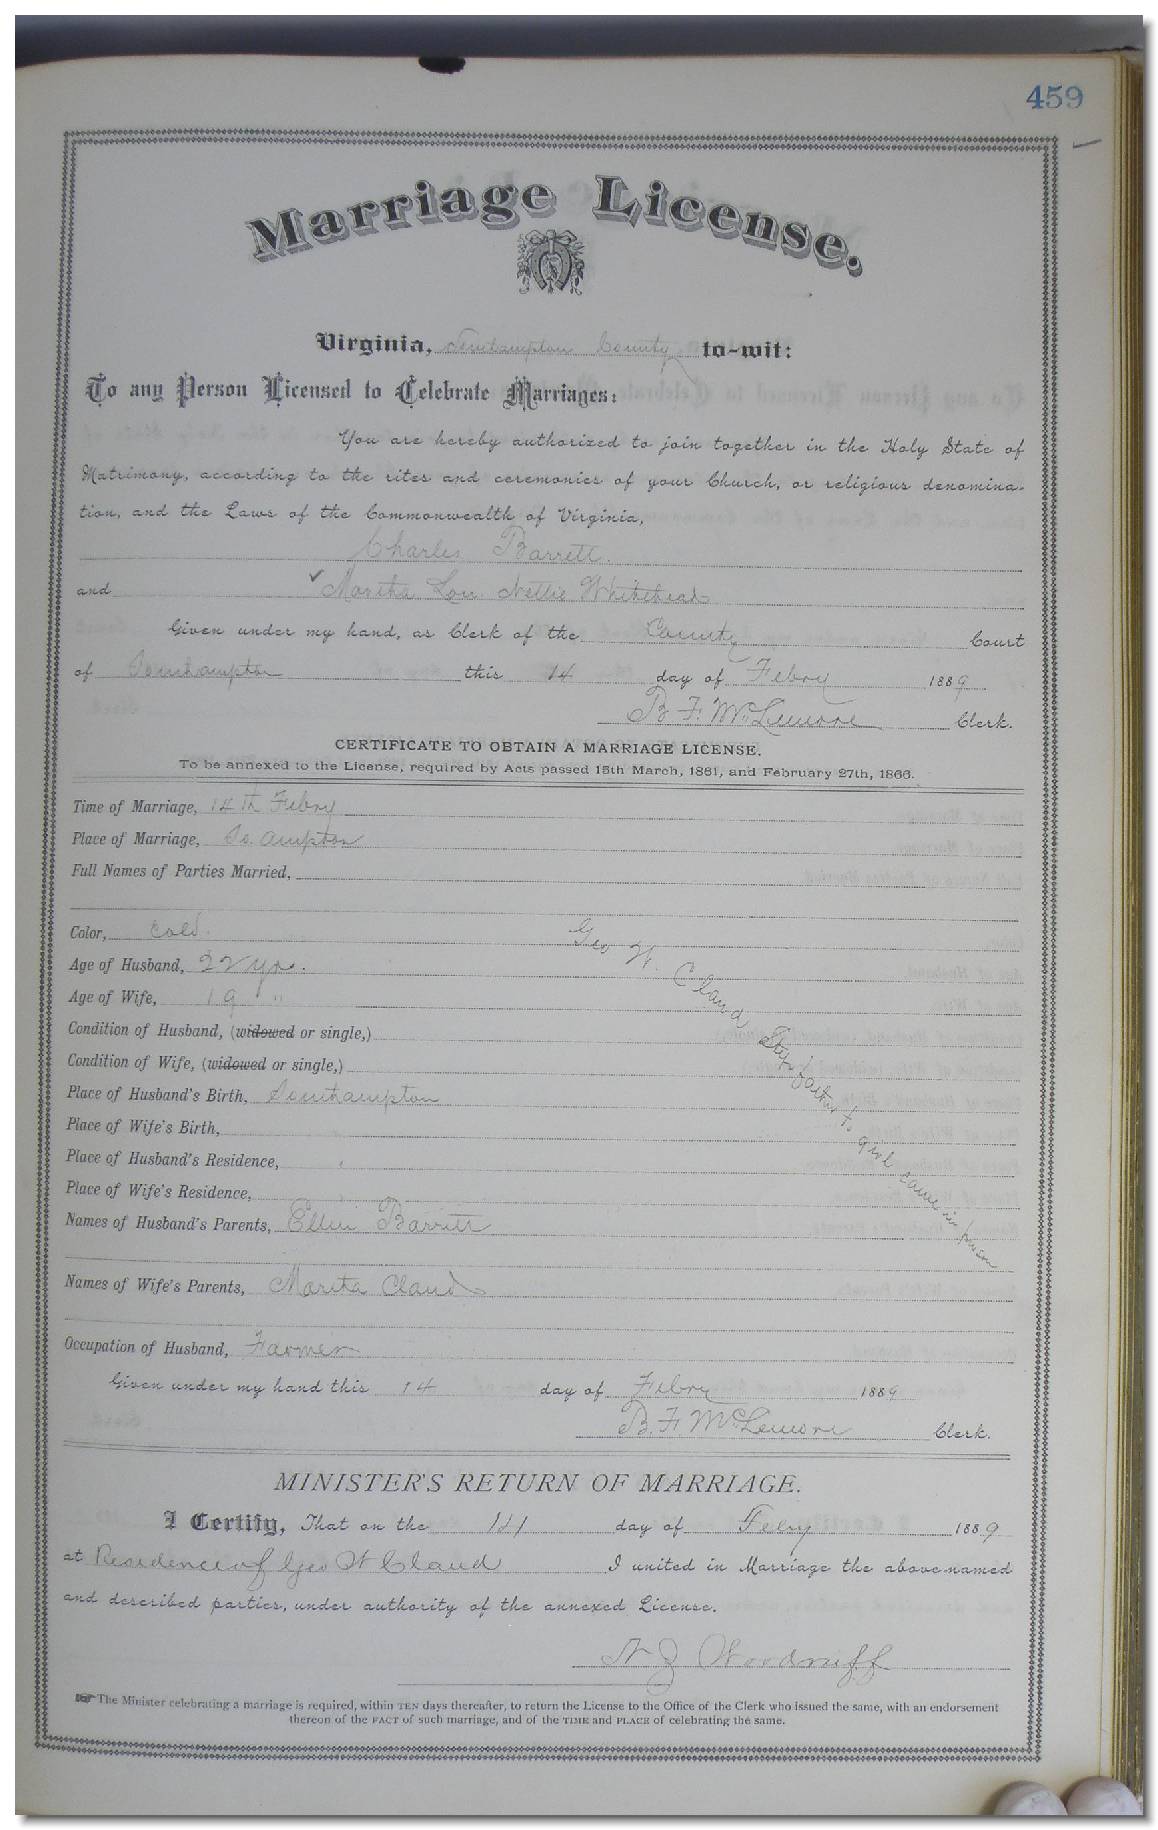 459
Marriage License.
Virginia, Southampton County to-wit:
To any Person Licensed to Celebrate Marriages:
You are hereby authorized to join together in the Holy State of
Matrimony, according to the rites and ceremonies of your Church, or religious denomina-
tion, and the Laws of the Commonwealth of Virginia,
Charles Barrett.
and ✓ Martha Lou Nellie Whitehead
Given under my hand, as Clerk of the County Court
of Southampton this 14 day of Febry 1889
B. F. McLemore Clerk.
CERTIFICATE TO OBTAIN A MARRIAGE LICENSE.
To be annexed to the License, required by Acts passed 15th March, 1861, and February 27th, 1866.
Time of Marriage, 14th Febry
Place of Marriage, So. ampton
Full Names of Parties Married,
Color, Cold.
Age of Husband, 22 yrs.
Age of Wife, 19 "
Condition of Husband, (widowed or single,)
Condition of Wife, (widowed or single,)
Place of Husband's Birth, Southampton
Place of Wife's Birth, "
Place of Husband's Residence, "
Place of Wife's Residence, "
Names of Husband's Parents, Ellen Barrett
Names of Wife's Parents, Martha Claud
Occupation of Husband, Farmer
Geo W. Claud Step father to girl came in person
Given under my hand this 14 day of Febry 1889
B. F. McLemore Clerk.
MINISTER'S RETURN OF MARRIAGE.
I Certify, That on the 14 day of Febry 1889
at Residence of Geo W Claud I united in Marriage the above-named
and described parties, under authority of the annexed License.
Woodruff
The Minister celebrating a marriage is required, within TEN days thereafter, to return the License to the Office of the Clerk who issued the same, with an endorsement
thereon of the FACT of such marriage, and of the TIME and PLACE of celebrating the same.